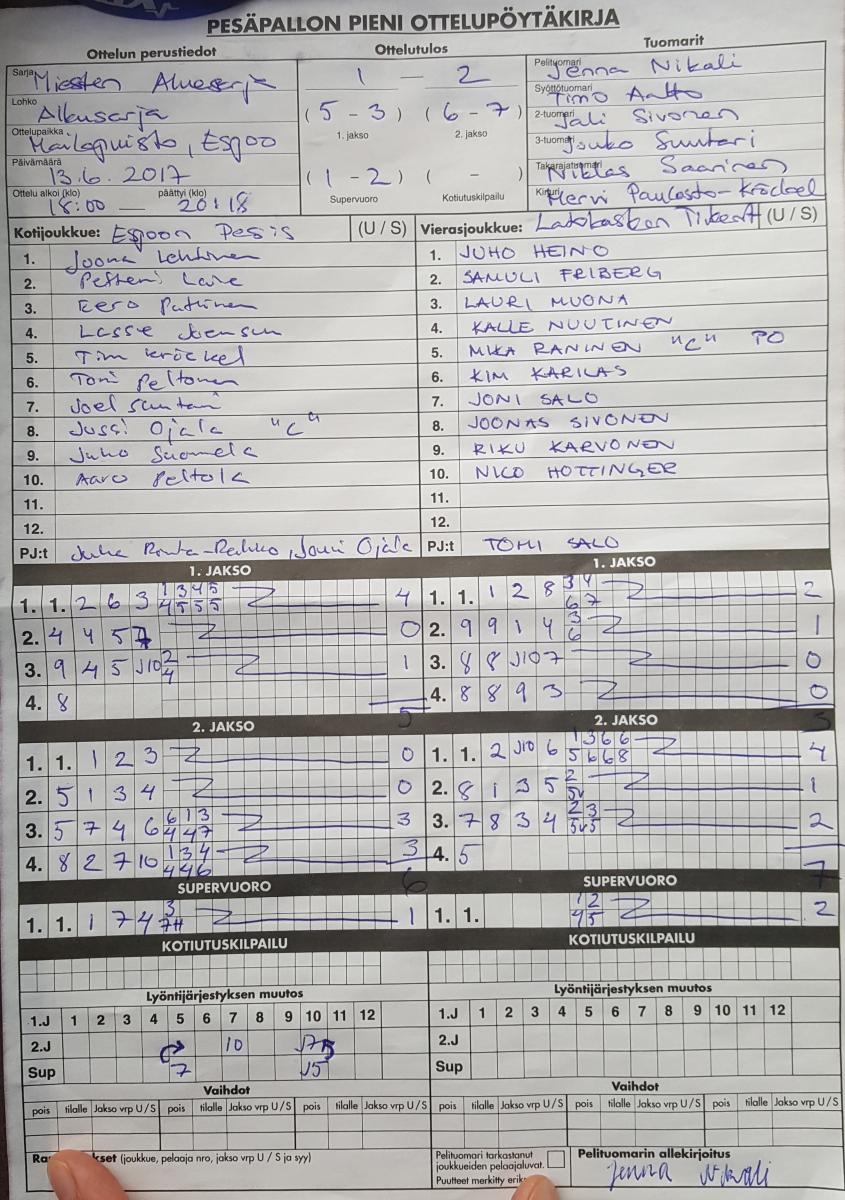 PESÄPALLON PIENI OTTELUPÖYTÄKIRJA
Ottelun perustiedot Ottelutulos Tuomarit
Sarja Miesten Aluesarja 1 — 2 Pelituomari Jenna Nikali
Lohko Alkusarja (5 - 3) (6 - 7) Syöttötuomari Timo Aalto
1. jakso 2. jakso 2-tuomari Jali Sivonen
Ottelupaikka Mailapuisto, Espoo 3-tuomari Jouko Suutari
Päivämäärä 13.6.2017 (1 - 2) ( - ) Takarajatuomari Niklas Saarinen
Ottelu alkoi (klo) 18:00 — päättyi (klo) 20:18 Supervuoro Kotiutuskilpailu Kirjuri Mervi Paulasto-Kröckel
Kotijoukkue: Espoon Pesis (U / S) Vierasjoukkue: Latokasken Tiikerit (U / S)
1. Joona Lehtinen 1. JUHO HEINO
2. Petteri 2. SAMULI FRIBERG
3. Eero Puttinen 3. LAURI MUONA
4. Lasse Joensuu 4. KALLE NUUTINEN
5. Tim Kröckel 5. MIKA RANINEN "C" PO
6. Toni Peltonen 6. KIM KARILAS
7. Joel Suutari 7. JONI SALO
8. Jussi Ojala "C" 8. JOONAS SIVONEN
9. Juho Suomela 9. RIKU KARVONEN
10. Aaro Peltola 10. NICO HOTTINGER
11. 11.
12. 12.
PJ:t Juha Ranta-, Jouni Ojala PJ:t TOMI SALO
1. JAKSO 1. JAKSO
1. 1. 2 6 3 1 3 4 5 4 1. 1. 1 2 8 3 4 2
4 5 5 5 6 7
2. 4 4 5 7 0 2. 9 9 1 4 3 1
6
3. 9 4 5 J10 2 1 3. 8 8 J10 7 0
4
4. 8 5 4. 8 8 9 3 0
3
2. JAKSO 2. JAKSO
1. 1. 1 2 3 0 1. 1. 2 J10 6 1 3 6 6 4
5 6 6 8
2. 5 1 3 4 0 2. 8 1 3 5 2 1
5v
3. 5 7 4 6 6 1 3 3 3. 7 8 3 4 2 3 2
4 4 7 5v5
4. 8 2 7 10 1 3 4 3 4. 5
4 4 6
6 7
SUPERVUORO SUPERVUORO
1. 1. 1 7 4 3 1 1. 1. 1 2 2
7H 4 5
KOTIUTUSKILPAILU KOTIUTUSKILPAILU
Lyöntijärjestyksen muutos Lyöntijärjestyksen muutos
1.J 1 2 3 4 5 6 7 8 9 10 11 12 1.J 1 2 3 4 5 6 7 8 9 10 11 12
2.J 10 J7 2.J
Sup 7 J5 Sup
Vaihdot Vaihdot
pois tilalle Jakso vrp U / S pois tilalle Jakso vrp U / S pois tilalle Jakso vrp U / S pois tilalle Jakso vrp U / S
(joukkue, pelaaja nro, jakso vrp U / S ja syy) Pelituomari tarkastanut joukkueiden pelaajaluvat. Pelituomarin allekirjoitus
Puutteet merkitty Jenna Nikali